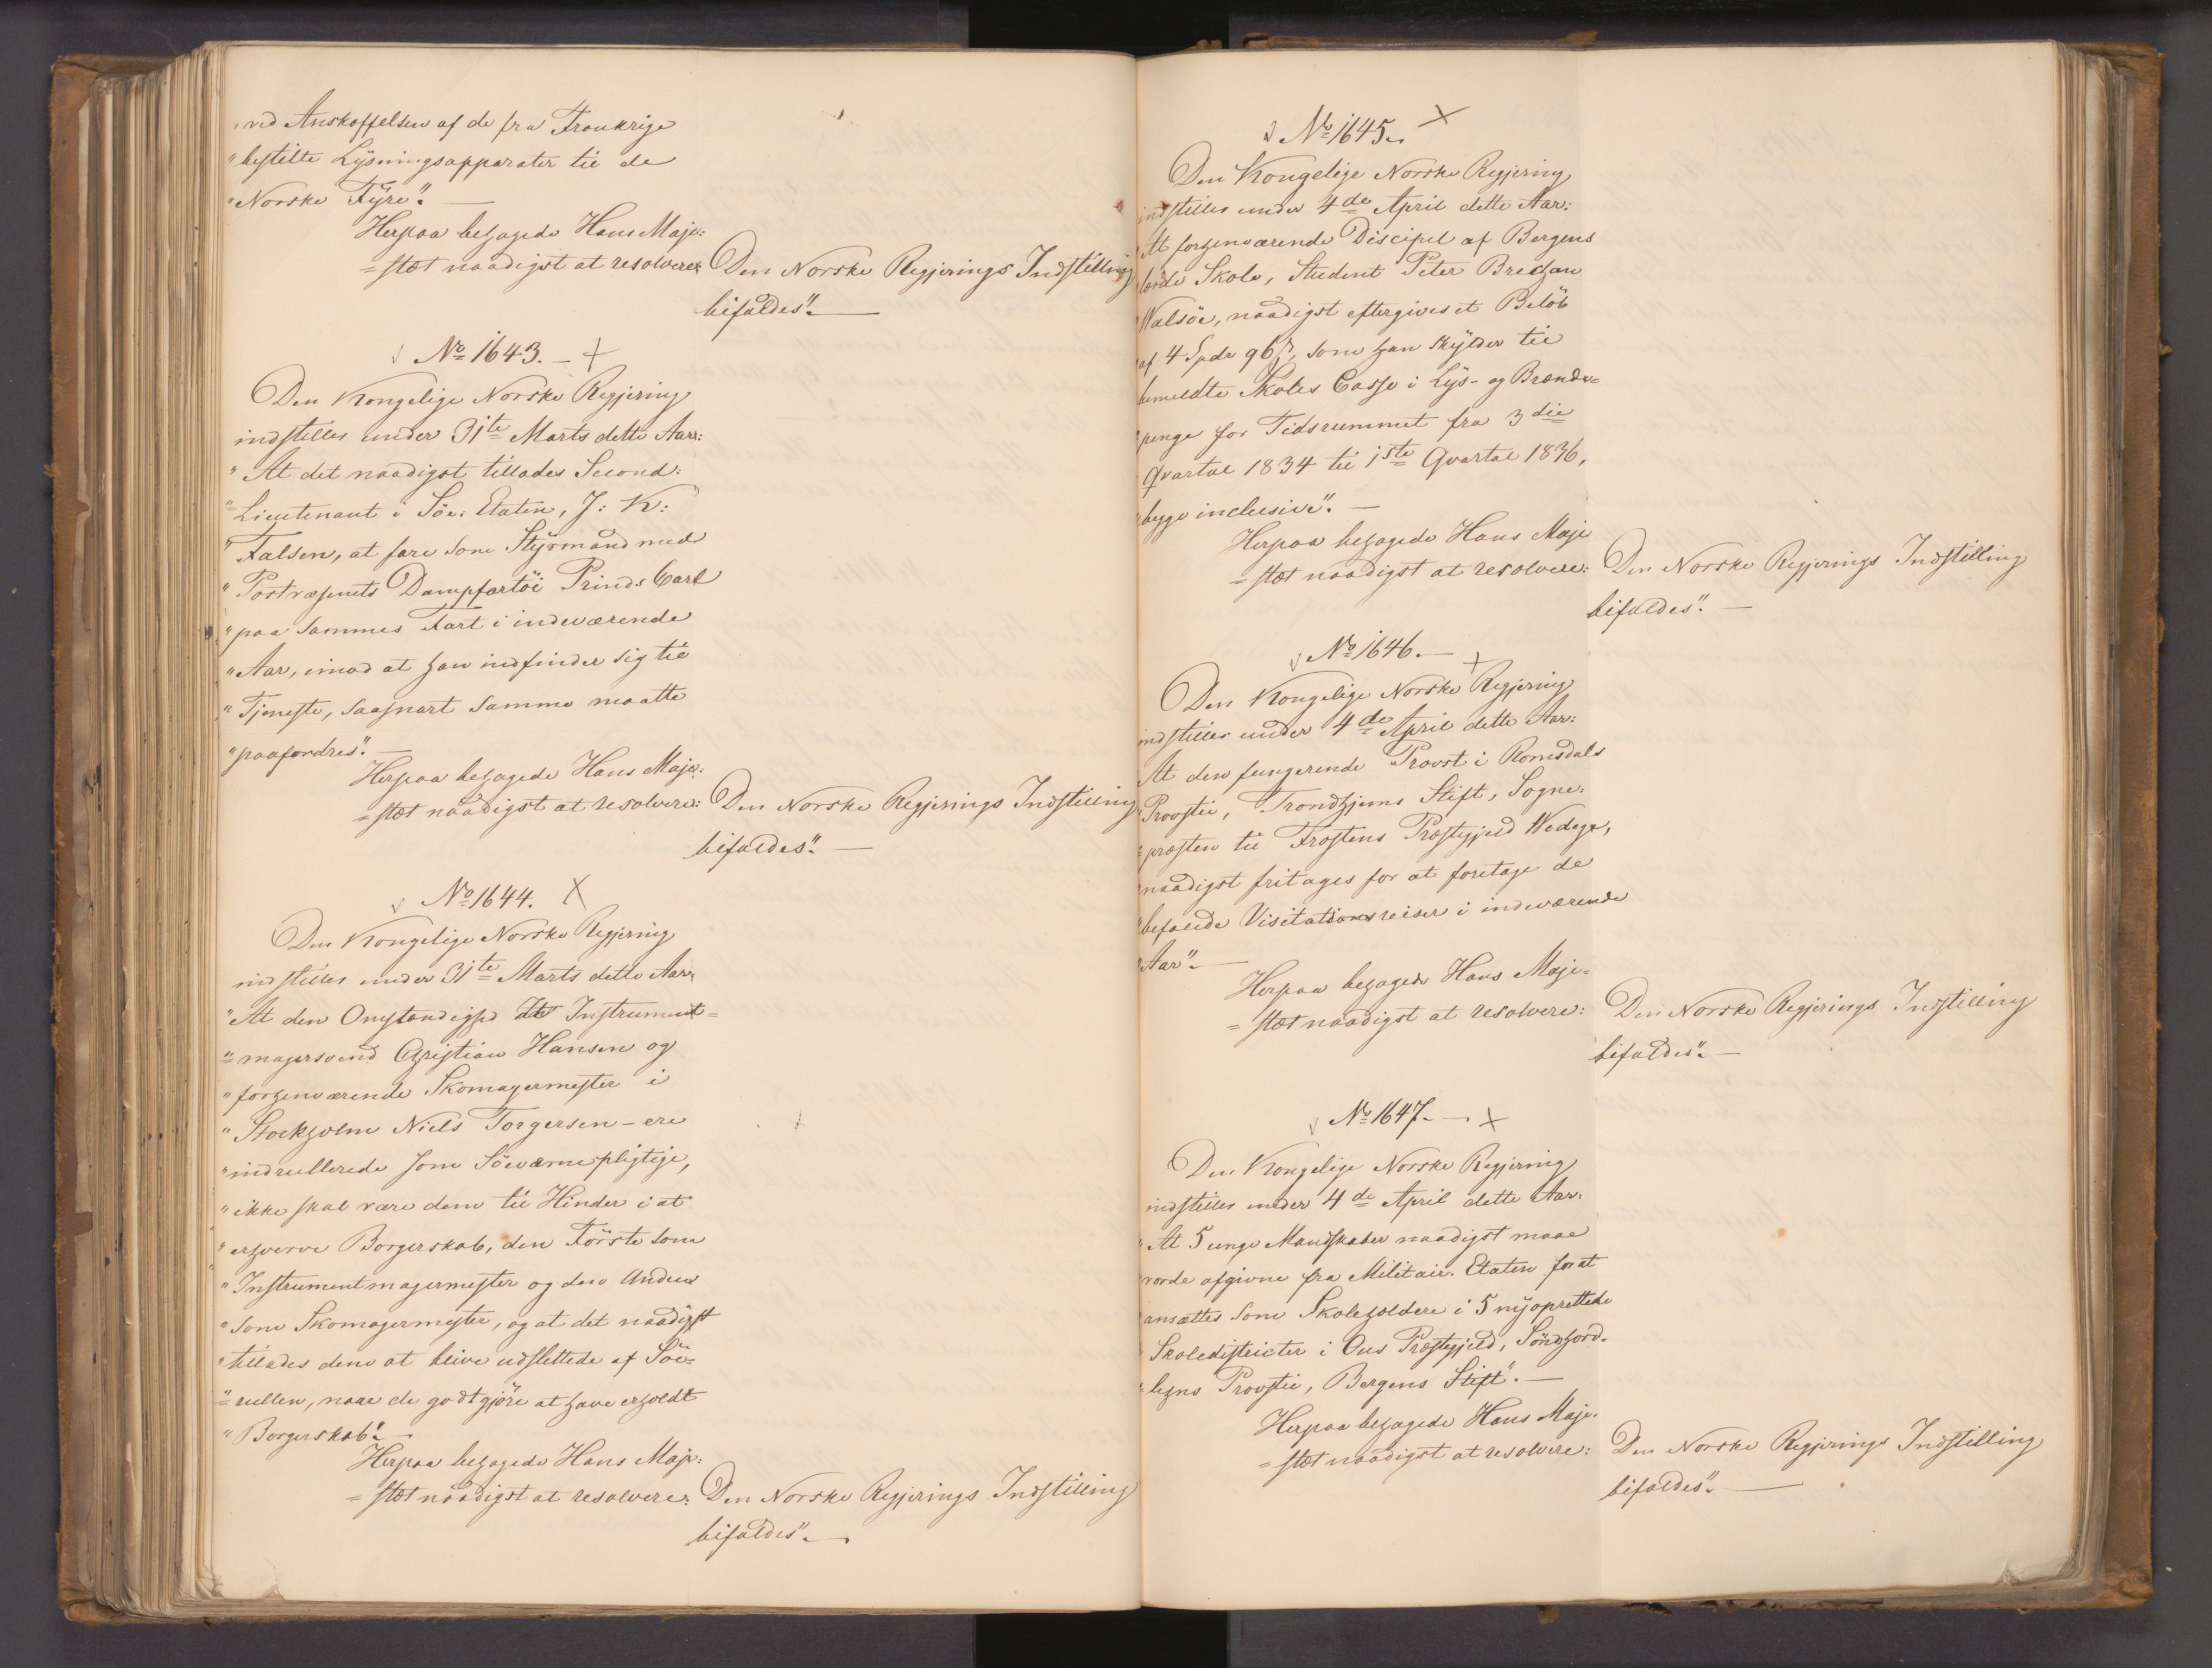 "ved Anskaffelsen af de fra Frankrige
"bestilte Lysningsapparater til de
"Norske Fyre".
Herpaa behagede Hans Maje:
=stæt naadigst at resolvere: Den Norske Regjerings Indstilling
bifaldes".
No 1643.
Den Kongelige Norske Regjering
indstiller under 31te Marts dette Aar:
"At det naadigst tillades Second:
"Lieutenant i Söe: Etaten, J: K:
"Falsen, at fare som Styrmand med
"Postvæsenets Dampfartöi Prinds Carl
"paa sammes Fart i indeværende
"Aar, imod at han indfinder sig til
"Tjeneste, saasnart samme maatte
"paafordres".
Herpaa behagede Hans Maje:
=stæt naadigst at resolvere: Den Norske Regjerings Indstilling
bifaldes".
No 1644.
Den Kongelige Norske Regjering
indstiller under 31te Marts dette Aar:
"At den Omstændighed at Instrument=
"=magersvend Christian Hansen og
"forhenværende Skomagermester i
"Stockholm Niels Torgersen - ere
"indrullerede som Söeværnepligtige,
"ikke skal være dem til Hinder i at
"erhverve Borgerskab, den Förste som
"Instrumentmagermester og den Anden
"som Skomagermester, og at det naadigst
"tillades dem at blive udslettede af Söe=
"=rullen, naar de godtgjöre at have erholdt
"Borgerskab".
Herpaa behagede Hans Maje:
=stæt naadigst at resolvere: Den Norske Regjerings Indstilling
bifaldes".
No 1645.
Den Kongelige Norske Regjering
indstiller under 4de April dette Aar:
At forhenværende Discipel af Bergens
lærde Skole, Student Peter Bredahl
Walsöe, naadigst eftergives et Belöb
af 4 Spdr 96 ß, som han skylder til
bemeldte Skoles Casse i Lys- og Brænde=
penge for Tidsrummet fra 3die
Qvartal 1834 til 1ste Qvartal 1836,
begge inclusive".
Herpaa behagede Hans Maje
=stæt naadigst at resolvere: Den Norske Regjerings Indstilling
bifaldes".
No 1646.
Den Kongelige Norske Regjering
indstiller under 4de April dette Aar:
At den fungerende Provst i Romsdals
Provstie, Trondhjems Stift, Sogne:
præsten til Frostens Præstegjeld Wedege,
naadigst fritages for at foretage de
befalede Visitationsreiser i indeværende
Aar".
Herpaa behagede Hans Maje=
=stæt naadigst at resolvere: Den Norske Regjerings Indstilling
bifaldes".
No 1647.
Den Kongelige Norske Regjering
indstiller under 4de April dette Aar:
"At 5 unge Mandskaber naadigst maae
vorde afgivne fra Militair-Etaten for at
ansættes som Skoleholdere i 5 nyoprettede
Skoledistricter i Ous Præstegjeld, Söndhord=
lehns Provstie, Bergens Stift".
Herpaa behagede Hans Maje=
=stæt naadigst at resolvere: Den Norske Regjerings Indstilling
bifaldes".